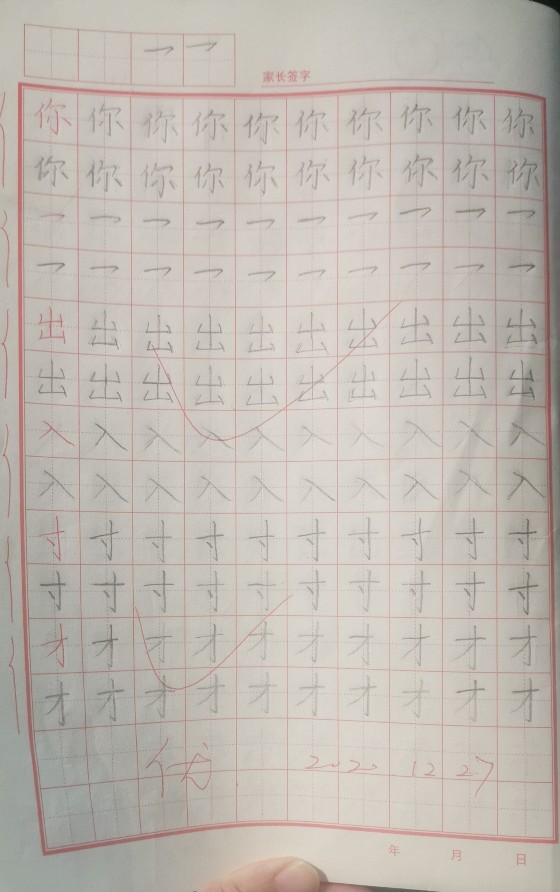 乛 乛
家长签字
你 你 你 你 你 你 你 你 你 你
你 你 你 你 你 你 你 你 你 你
乛 乛 乛 乛 乛 乛 乛 乛 乛 乛
乛 乛 乛 乛 乛 乛 乛 乛 乛 乛
出 出 出 出 出 出 出 出 出 出
出 出 出 出 出 出 出 出 出 出
入 入 入 入 入 入 入 入 入 入
入 入 入 入 入 入 入 入 入 入
寸 寸 寸 寸 寸 寸 寸 寸 寸 寸
寸 寸 寸 寸 寸 寸 寸 寸 寸 寸
才 才 才 才 才 才 才 才 才 才
才 才 才 才 才 才 才 才 才 才
优 2020 12 27
年 月 日